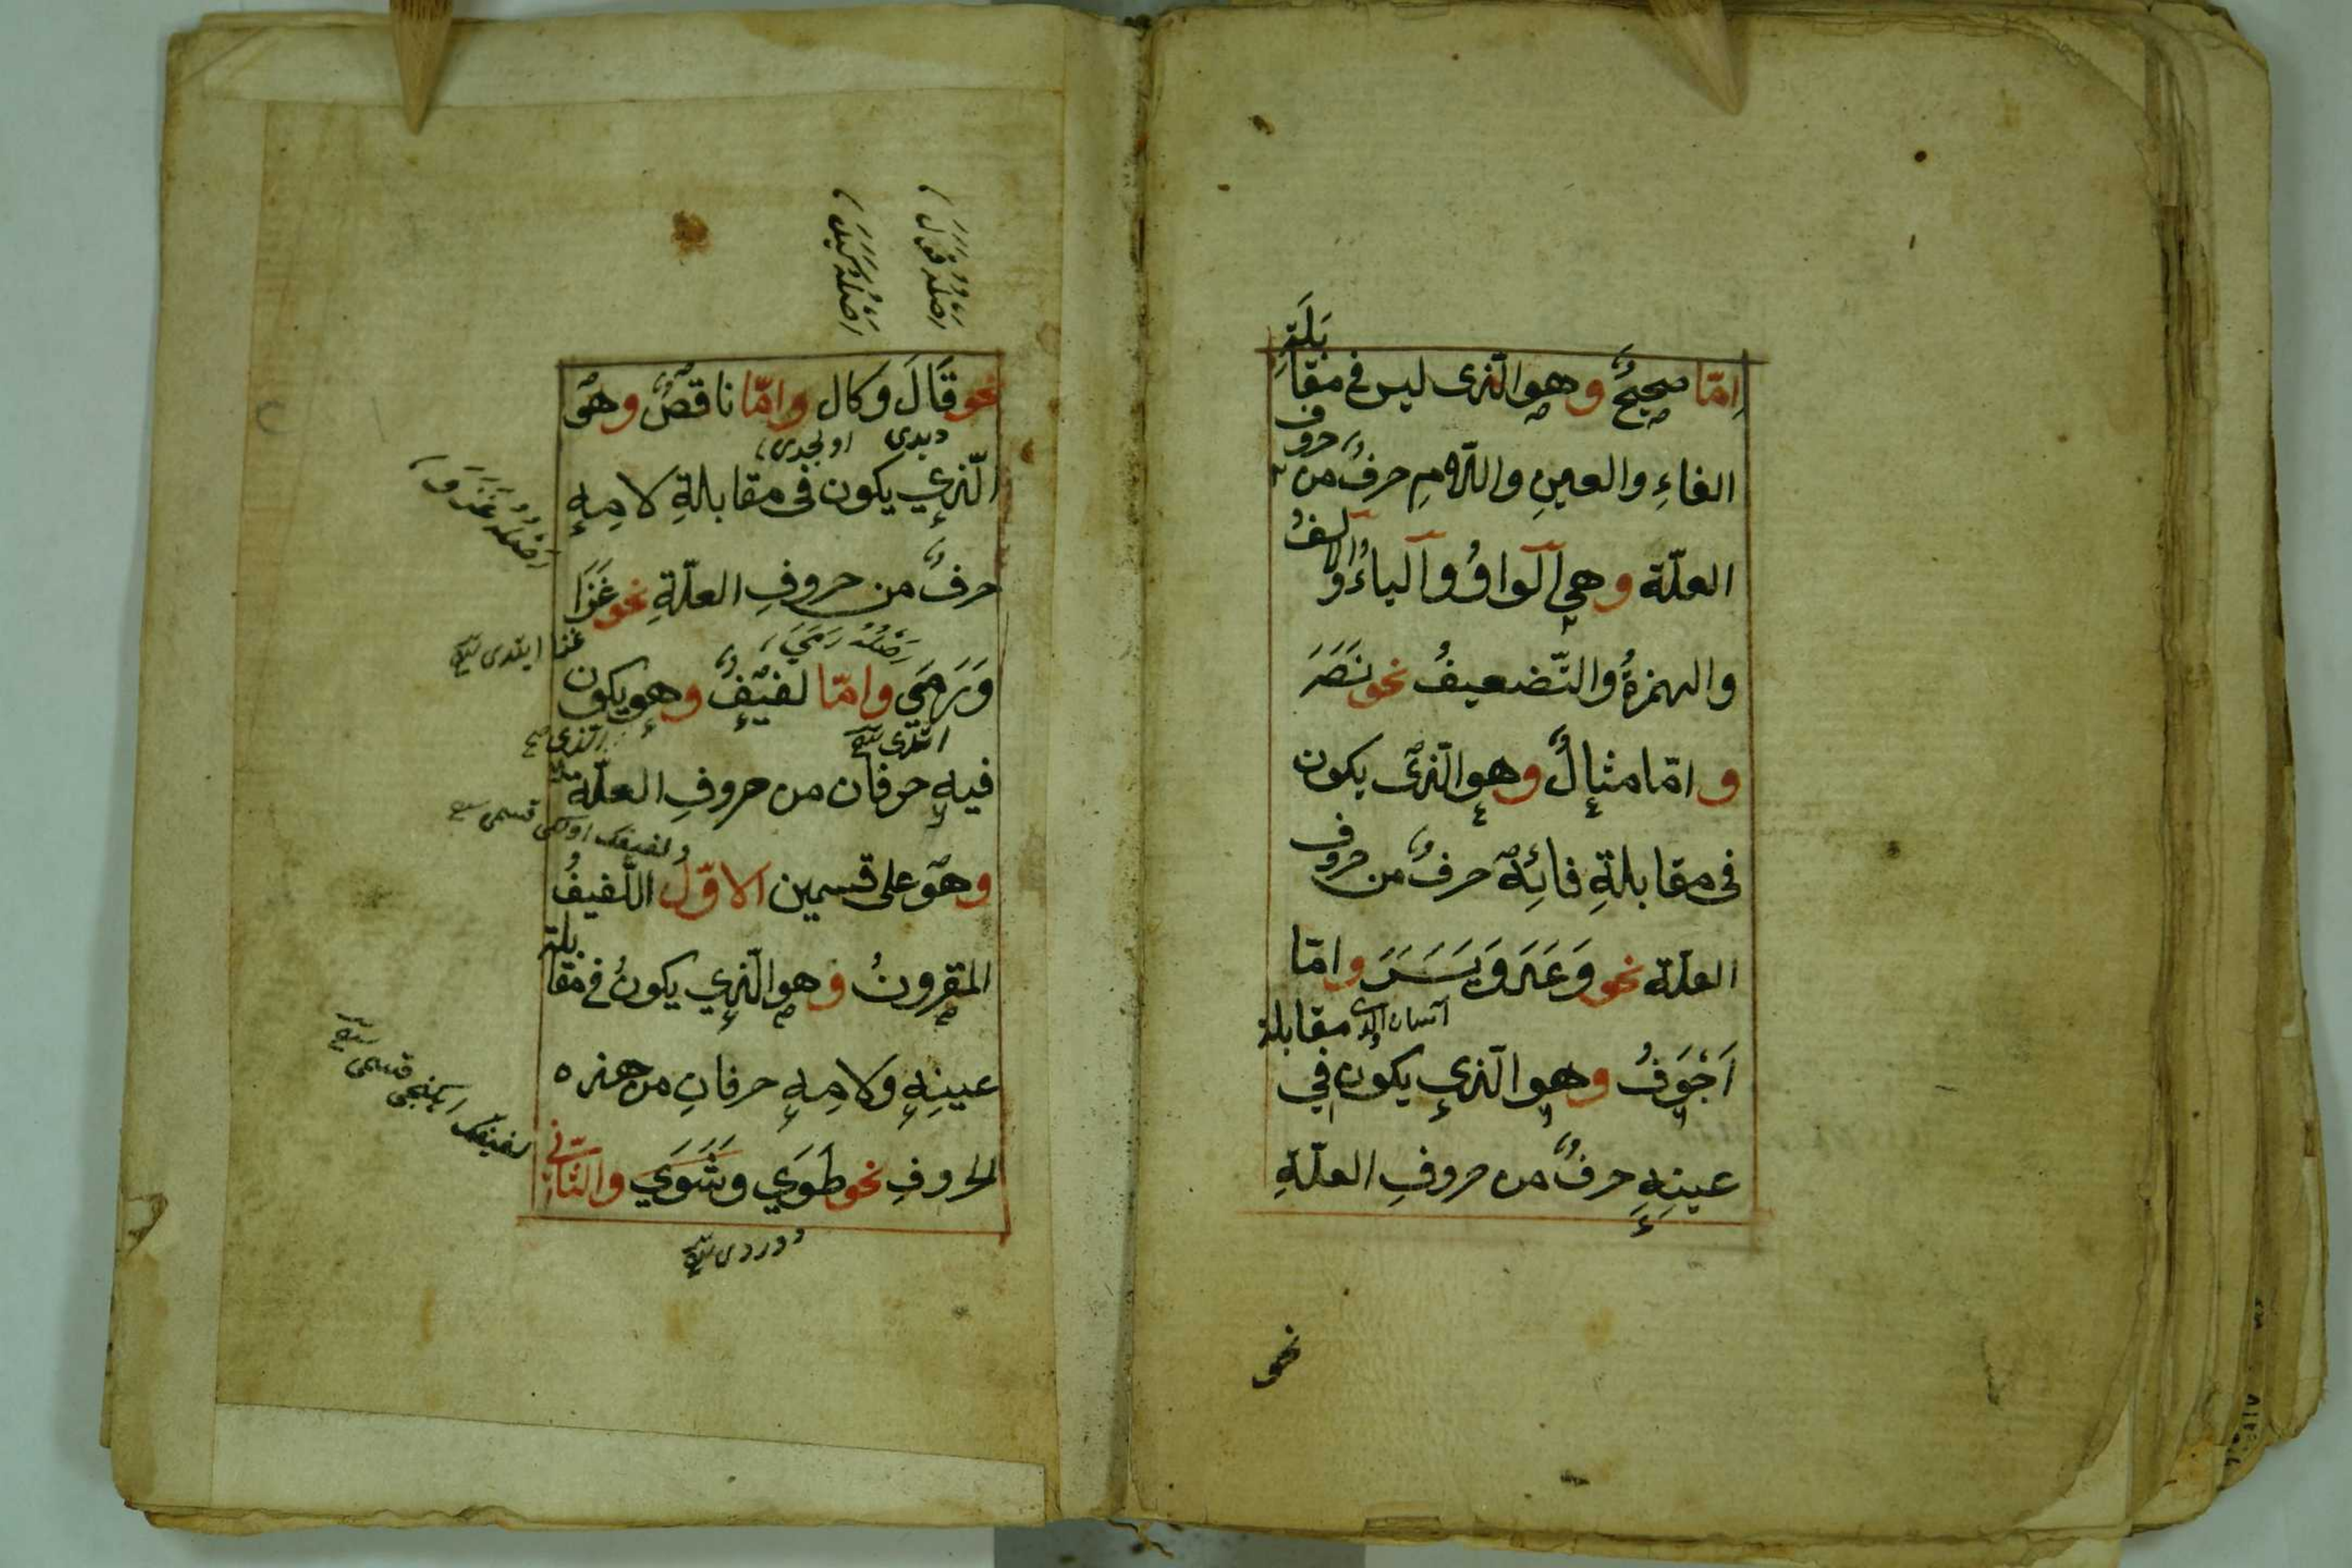 اِمّا صحيحٌ وهو الّذى ليس فى مقابَلَةِ
الفاءِ والعينِ واللّامِ حرفٌ من حروف
العلّة وهي الواوُ والياءُ والالفُ
والهمزةُ والتّضعيفُ نحو نَصَرَ
و امّا مثالٌ وهو الّذى يكون
فى مقابلةِ فائِهِ حرفٌ من حروف
العلّة نحو وَعَدَ وَيَسَرَ وامّا
اَجْوَفُ وهو الّذي يكون في مقابلة
عينِهِ حرفٌ من حروفِ العلّةِ
نحو
اَصْلُهُ قَوَلَ
اَصْلُهُ كَيَلَ
نحو قَالَ وكال وامّا ناقصٌ وهو
ديدى اولچدى
الّذي يكون فى مقابلةِ لامِهِ
اَصْلُهُ غَزَوَ
حرفٌ من حروفِ العلّةِ نحو غَزَا
اَصْلُهُ رَمَيَ
غزا ايتدى
وَرَمَي وامّا لفيفٌ وهو يكون
اتدى
فيهِ حرفان من حروفِ العلّة
ولفيفك اولكى قسمى
وهو على قسمين الاوّلُ اللّفيفُ
المقرونُ وهو الّذي يكونُ فى مقابلة
عينِهِ ولامِهِ حرفانِ من هذه
لفيفك ايكنجى قسمى
الحروفِ نحو طَوَي وشَوَي والثّانى
دوردى